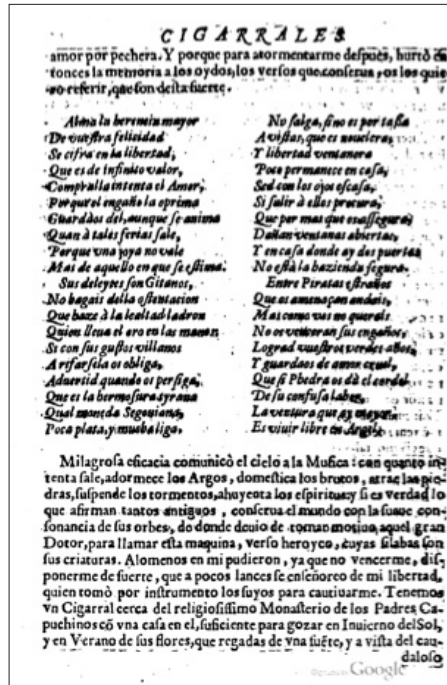 CIGARRALES
amor por pechera. Y porque para atormentarme despues, hurtò en
tonces la memoria a los oydos, los versos que conserua, os los quie
ro referir, que son desta suerte.
Alma la heremcia mayor
De vuestra felicidad
Se cifra en la libertad;
Que es de infinito valor,
Compralla intenta el Amor;
Porque el engaño la oprima
Guardàos del, aunque se anima
Quan à tales ferias sale,
Porque vna joya no vale
Mas de aquello en que se estima.
Sus deleytes son Gitanos,
No hagais della ostentacion
Que haze à la lealtad ladron
Quien lleua el oro en las manos
Si con sus gustos villanos
A rifarsela os obliga,
Aduertid quando os persiga,
Que es la hermosura tyrana
Qual moneda Segouiana,
Poca plata, y mucha liga,
No salga, sino es por tassa
A vistas, que es nouelera;
Y libertad ventanera
Poco permanece en casa,
Sed con los ojos escasa,
Si salir à ellos procura;
Que por mas que os assegura;
Dañan ventanas abiertas,
Y en casa donde ay dos puertas
No està la hazienda segura.
Entre Piratas estraños
Que os amenaçan andais,
Mas como vos no querais
No os venceran sus engaños,
Lograd vuestros verdes años,
Y guardaos de amor cruel,
Que si Phedra os dà el cordel
De su confusa labor,
La ventura que ay mayor
Es viuir libre en Argel.
Milagrosa eficacia comunicò el cielo a la Musica: con quanto in
tenta sale, adormece los Argos, domestica los brutos, atrae las pie
dras, suspende los tormentos, ahuyenta los espiritus: y si es verdad lo
que afirman tantos antiguos, conserua el mundo con la suaue con-
sonancia de sus orbes, de donde deuio de tomar motiuo aquel gran
Dotor, para llamar esta maquina, verso heroyco, cuyas silabas son
sus criaturas. Alomenos en mi pudieron, ya que no vencerme, dis-
ponerme de suerte, que a pocos lances se enseñoreo de mi libertad,
quien tomò por instrumento los suyos para cautiuarme. Tenemos
vn Cigarral cerca del religiosissimo Monasterio de los Padres Ca-
puchinos cō vna casa en el, suficiente para gozar en Inuierno del Sol,
y en Verano de sus flores, que regadas de vna fuēte, y a vista del cau-
daloso
Google